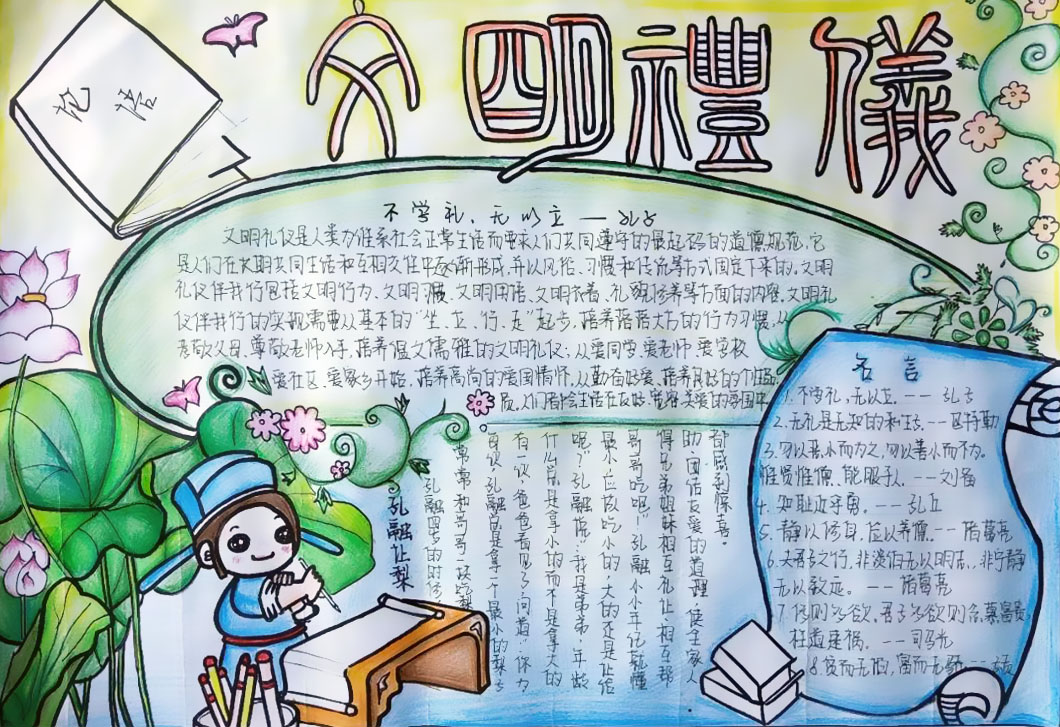 文明禮儀
论语
不学礼,无以立——孔子
文明礼仪是人类为维系社会正常生活而要求人们共同遵守的最起码的道德规范,它
是人们在长期共同生活和互相交往中逐渐形成,并以风俗、习惯和传统等方式固定下来的。文明
礼仪伴我行包括文明行为、文明习惯、文明用语、文明衣着、礼貌修养等方面的内容。文明礼
仪伴我行的实现需要从基本的“坐、立、行、走”起步,培养落落大方的行为习惯,从
孝敬父母、尊敬老师入手,培养温文儒雅的文明礼仪;从爱同学、爱老师、爱学校
爱社区、爱家乡开始,培养高尚的爱国情怀,从勤奋好学、培养良好的个性品
质,人们都会生活在友好、宽容、关爱的氛围中
孔融让梨
孔融四岁的时候
常常和哥哥一块吃梨
每次,孔融总是拿一个最小的梨子
有一次,爸爸看见了,问道:“你为
什么总是拿小的而不是拿大的
呢?”孔融说:“我是弟弟,年龄
最小,应该吃小的,大的还是让给
哥哥吃吧!”孔融小小年纪就懂
得兄弟姐妹相互礼让、相互帮
助、团结友爱的道理,使全家人
都感到惊喜。
名言
1. 不学礼,无以立。——孔子
2. 无礼是无知的私生子。——巴特勒
3. 勿以恶小而为之,勿以善小而不为。
惟贤惟德、能服于人。——刘备
4. 知耻近乎勇。——孔丘
5. 静以修身,俭以养德——诸葛亮
6. 夫君子之行,非淡泊无以明志,非宁静
无以致远。——诸葛亮
7. 侈则多欲,君子多欲则贪慕富贵,
枉道速祸。——司马光
8. 贫而无怨,富而无骄